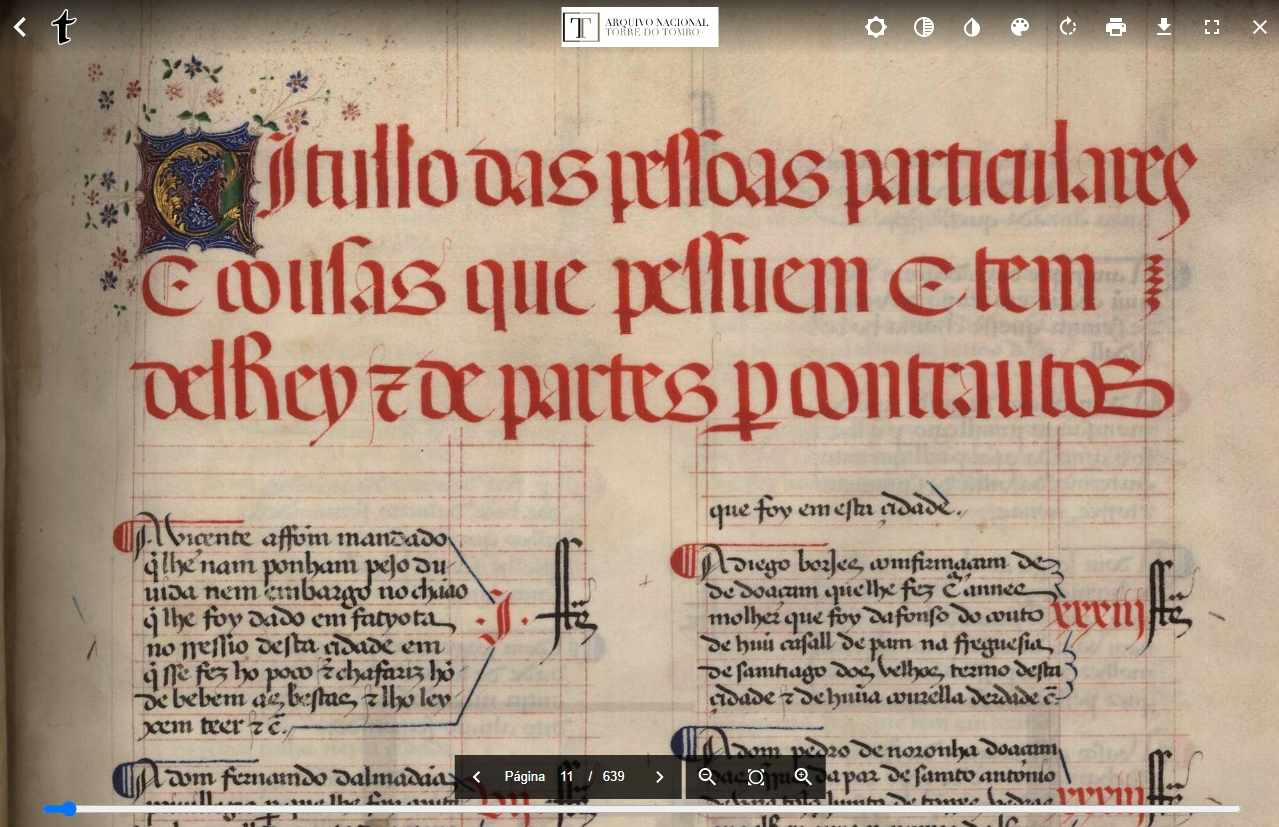 t
T ARQUIVO NACIONAL
TORRE DO TOMBO
TItullo das pessoas particulares
E cousas que pessuem E tem
delRey ⁊ de partes ꝑ contrautos
A vicente affom mandado
q̃ lhe nam ponham pejo du
uida nem embargo no chão
q̃ lhe foy dado em fatyota
no rressio desta cidade em
q̃ sse fez ho poço ⁊ chafariz hõ
de bebem as bestas ⁊ lho ley
xem teer ⁊ c̃.
.J.
A dom fernando dalmadaa
que foy em esta cidade.
A diego borjes comfirmaçam de
de doaçam que lhe fez C̃ annes
molher que foy dafonso do couto
de huũ casall de pam na freguesia
de santiago dos velhos termo desta
cidade ⁊ de huũa courella derdade c̃.
xxxiij
A dom pedro de noronha doaçam
da par de santo antonio
xxxiij
Página 11 / 639